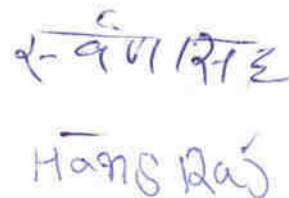 स्वर्ण सिंह
Hans Raj